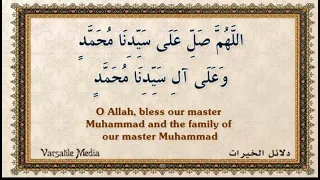 اللَّهُمَّ صَلِّ عَلَى سَيِّدِنَا مُحَمَّدٍ
وَعَلَى آلِ سَيِّدِنَا مُحَمَّدٍ
O Allah, bless our master
Muhammad and the family of
our master Muhammad
Varsatile Media
دلائل الخيرات